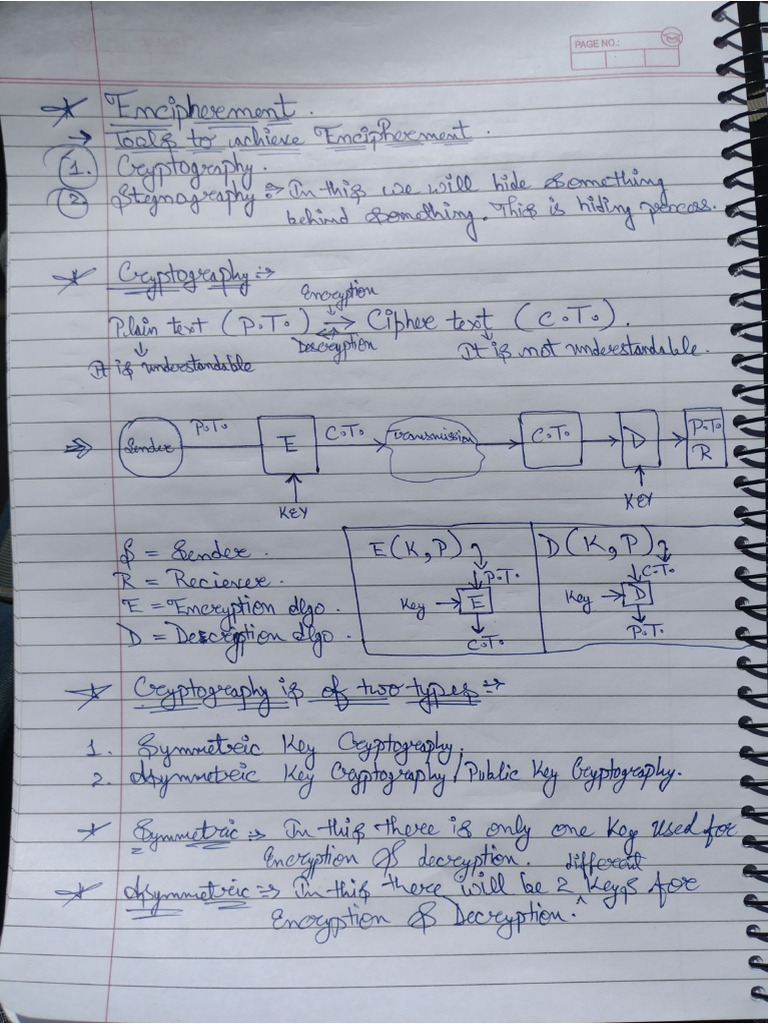 PAGE NO.:
* Encipherment.
→ Tools to achieve Encipherment.
1. Cryptography.
2. Stegnography :→ In this we will hide something
behind something. This is hiding process.
* Cryptography :→
Encryption
Plain text (P.T.) ⇌ Cipher text (C.T.).
Descryption
It is understandable
It is not understandable.
⇒ Sender P.T. → E C.T. → Transmission → C.T. → D → P.T. R
KEY KEY
S = Sender.
R = Reciever.
E = Encryption Algo.
D = Descryption Algo.
E(K,P)
P.T.
Key → E
C.T.
D(K,P)
C.T.
Key → D
P.T.
* Cryptography is of two types :→
1. Symmetreic Key Cryptography.
2. Asymmetreic Key Cryptography / Public Key Cryptography.
* Symmetric :→ In this there is only one Key used for
Encryption & decryption.
different
* Asymmetric :→ In this there will be 2 ^ Keys for
Encryption & Decryption.